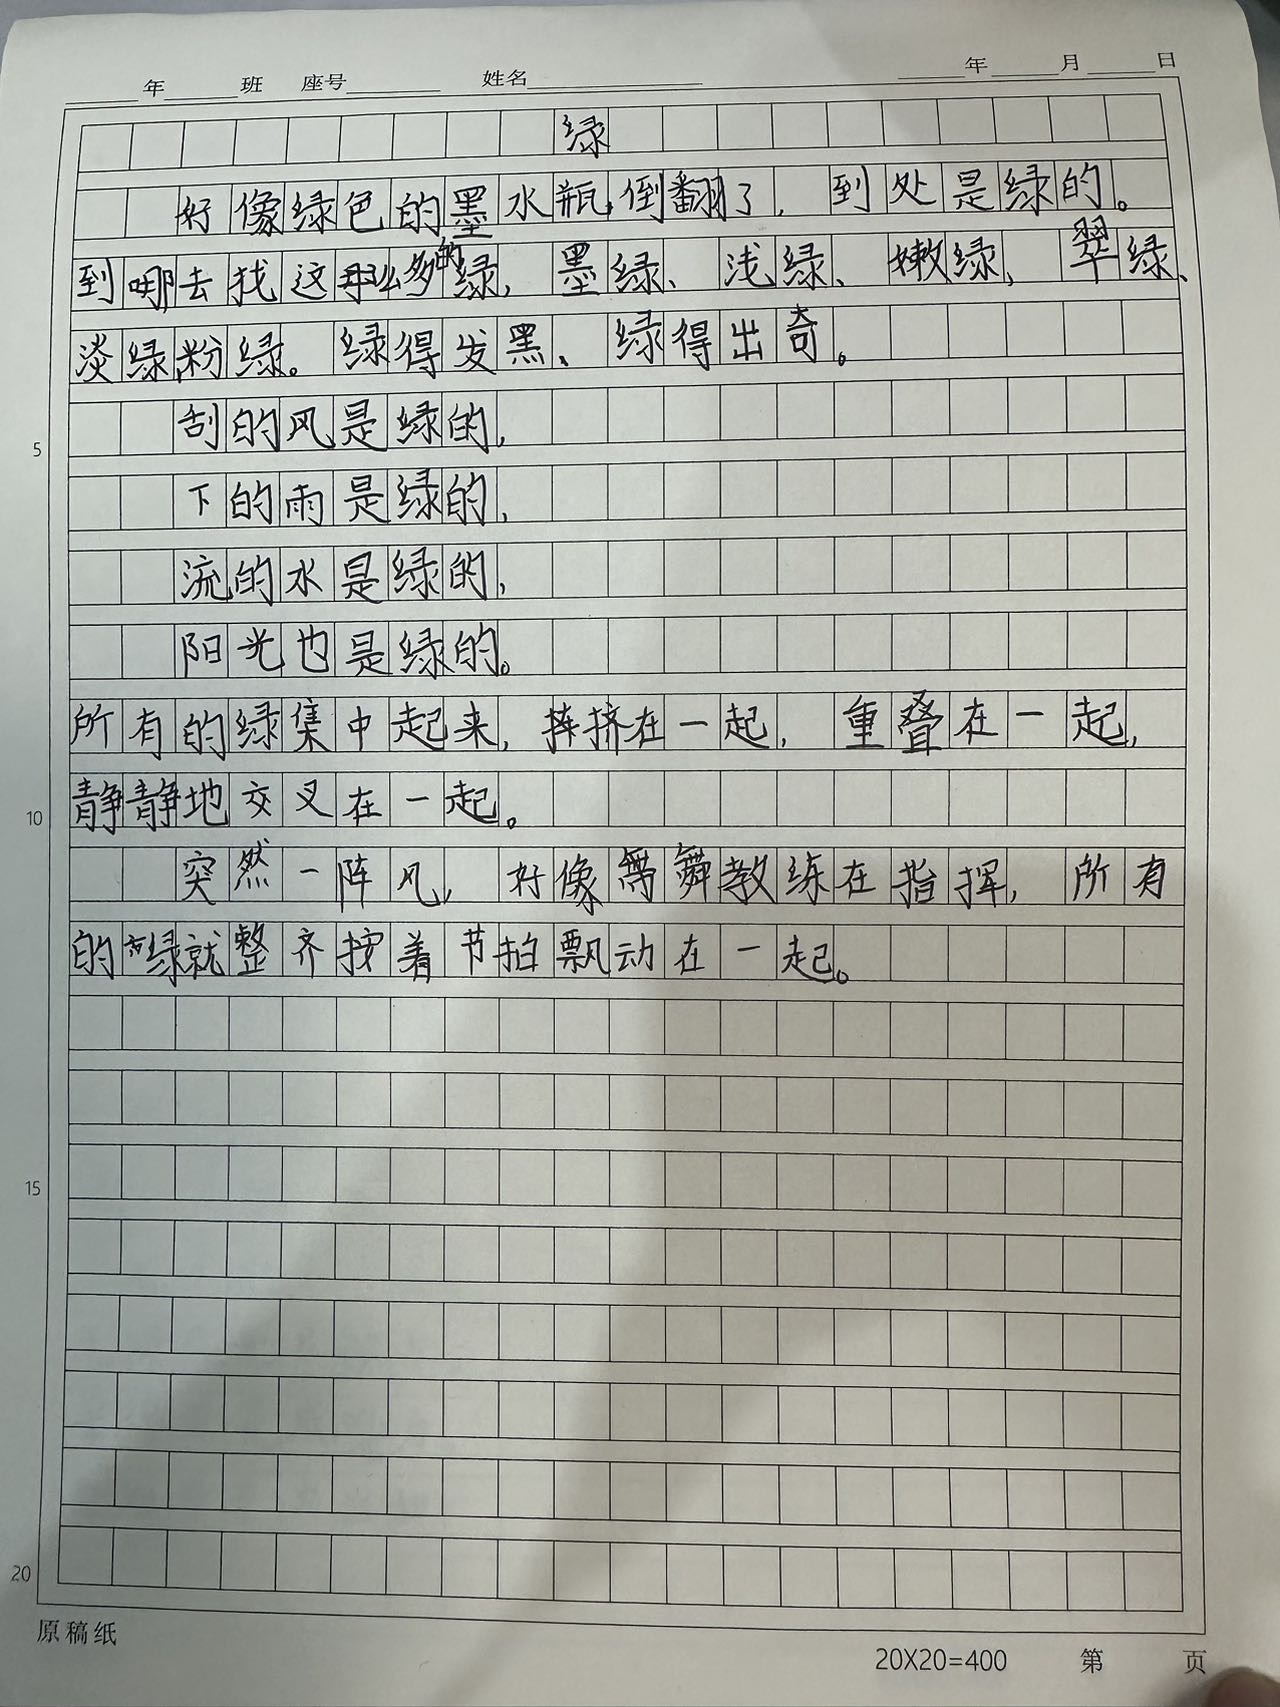 年 班 座号 姓名 年 月 日
绿
好像绿色的墨水瓶倒翻了，到处是绿的。
到哪去找这么多的绿，墨绿、浅绿、嫩绿、翠绿、
淡绿、粉绿。绿得发黑、绿得出奇。
刮的风是绿的，
5
下的雨是绿的，
流的水是绿的，
阳光也是绿的。
所有的绿集中起来，挤在一起，重叠在一起，
静静地交叉在一起。
10
突然一阵风，好像舞蹈教练在指挥，所有
的绿就整齐按着节拍飘动在一起。
15
20
原稿纸
20X20=400 第 页